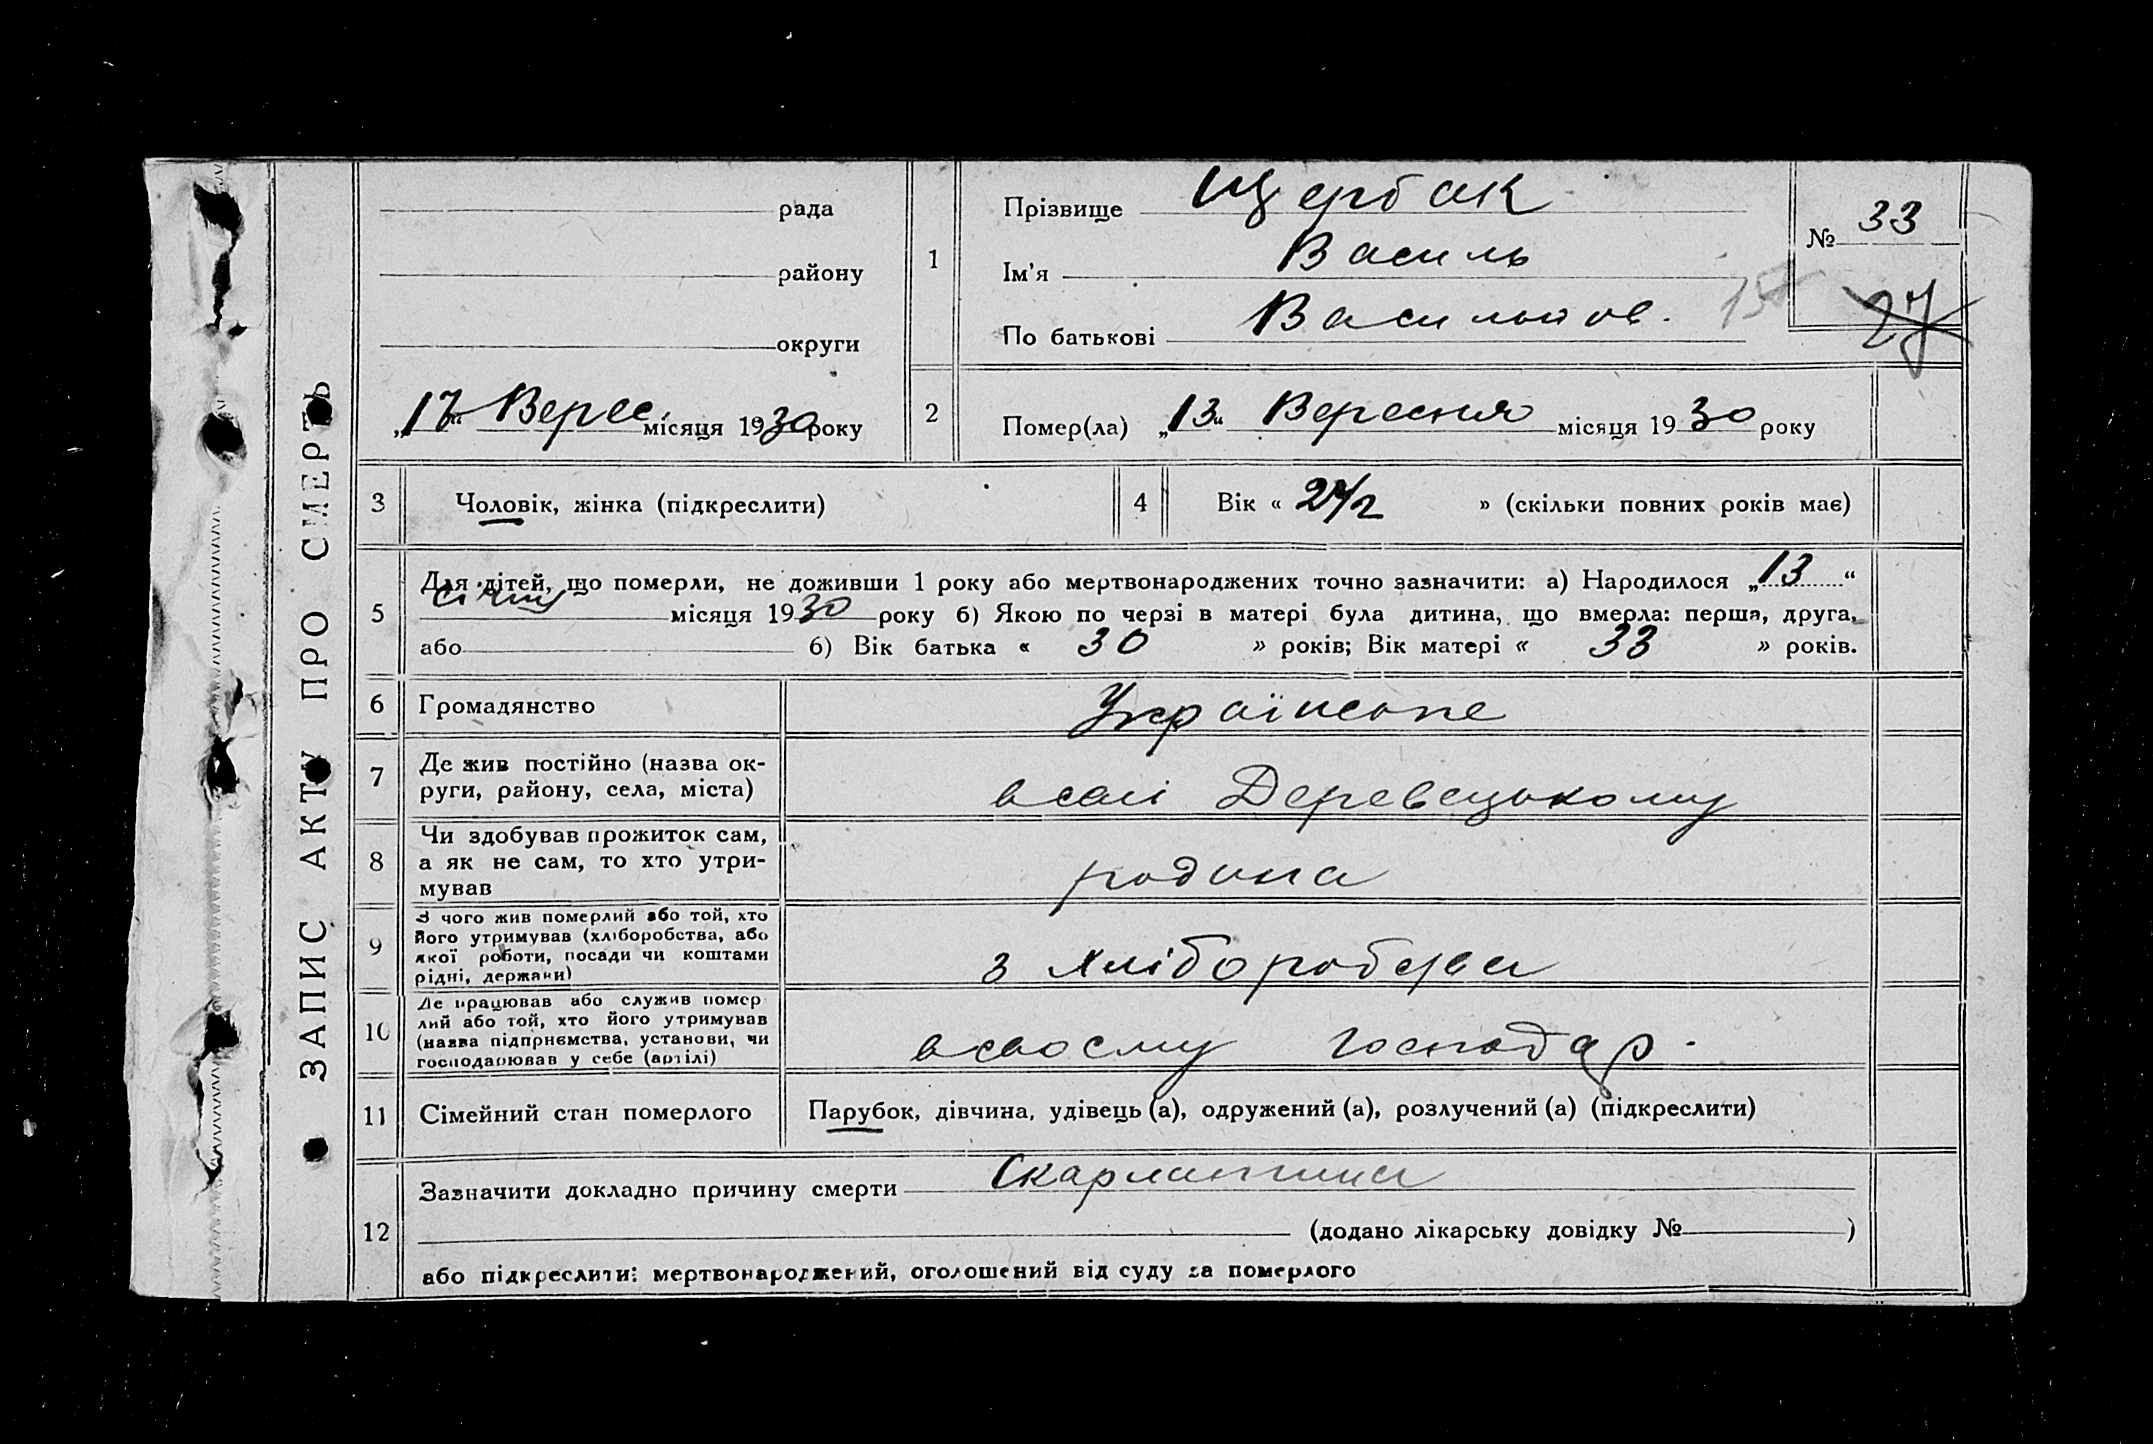 ЗАПИС АКТУ ПРО СМЕРТЬ
рада
району
округи
„17“ Верес. місяця 1930 року
1
Прізвище Щербак
Ім'я Василь
По батькові Васильов.
15
№ 33
27
2
Помер(ла) „13“ Вересня місяця 1930 року
3
Чоловік, жінка (підкреслити)
4
Вік « » (скільки повних років має)
5
Для дітей, що померли, не доживши 1 року або мертвонароджених точно зазначити: а) Народилося „13“
січня місяця 1930 року б) Якою по черзі в матері була дитина, що вмерла: перша, друга,
або б) Вік батька « 30 » років; Вік матері « 33 » років.
6
Громадянство
Українське
7
Де жив постійно (назва ок-
руги, району, села, міста)
в селі Деревецькому
8
Чи здобував прожиток сам,
а як не сам, то хто утри-
мував
родина
9
З чого жив померлий або той, хто
його утримував (хліборобства, або
якої роботи, посади чи коштами
рідні, держави)
з хліборобства
10
Де працював або служив помер
лий або той, хто його утримував
(назва підприємства, установи, чи
господарював у себе (артілі)
в своєму господар.
11
Сімейний стан померлого
Парубок, дівчина, удівець (а), одружений (а), розлучений (а) (підкреслити)
12
Зазначити докладно причину смерти Скарлатина
(додано лікарську довідку № )
або підкреслити: мертвонароджений, оголошений від суду за померлого